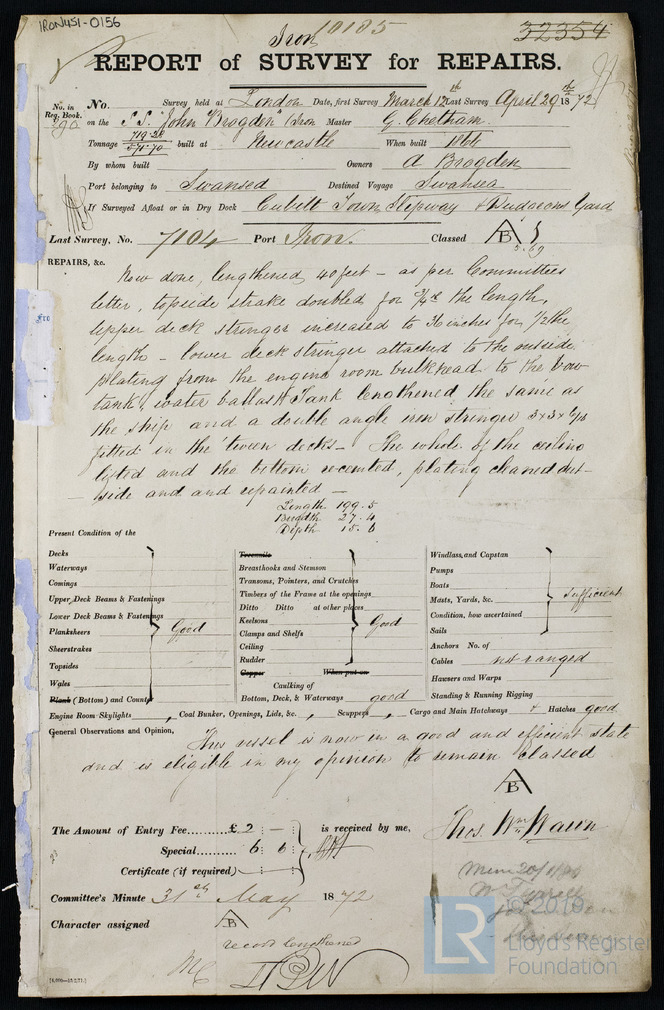 IRON451-0156
Iron 10185
32354
REPORT of SURVEY for REPAIRS.
No. in Reg. Book. No. Survey held at London Date, first Survey March 12th Last Survey April 29th 1872
390 on the S.S. "John Brogden" (Iron Master G. Chetham.
Tonnage 719.28 built at Newcastle When built 1866
571.70
By whom built Owners A Brogden
Port belonging to Swansea Destined Voyage Swansea
If Surveyed Afloat or in Dry Dock Cubitt Town Slipway & Dudgeons Yard
Last Survey, No. 7104 Port Iron. Classed A B 5.69
REPAIRS, &c.
Now done, lengthened 40 feet - as per Committees
letter, topside strake doubled for 3/4rs the length,
upper deck stringer increased to 36 inches for 1/2 the
length - lower deck stringer attached to the outside
plating from the engine room bulkhead to the bow
tank, water ballast Tank lengthened the same as
the ship and a double angle iron stringer 3x3x6/16
fitted in the 'tween decks - The whole of the ceiling
lifted and the bottom recemented, plating cleaned out-
-side and and repainted -
Length 199.5
Breadth 27.4
Depth 15.6
Present Condition of the
Decks
Waterways
Comings
Upper Deck Beams & Fastenings
Lower Deck Beams & Fastenings
Planksheers Good
Sheerstrakes
Topsides
Wales
Plank (Bottom) and Counter
Treenails
Breasthooks and Stemson
Transoms, Pointers, and Crutches
Timbers of the Frame at the openings
Ditto Ditto at other places
Keelsons Good
Clamps and Shelfs
Ceiling
Rudder
Copper When put on
Caulking of
Bottom, Deck, & Waterways good
Windlass, and Capstan
Pumps
Boats
Masts, Yards, &c. Sufficient
Condition, how ascertained
Sails
Anchors No. of
Cables not ranged
Hawsers and Warps
Standing & Running Rigging
Engine Room Skylights , Coal Bunker, Openings, Lids, &c. , Scuppers , Cargo and Main Hatchways & Hatches good
General Observations and Opinion, This vessel is now in a good and efficient state
and is eligible in my opinion to remain classed
A B
The Amount of Entry Fee...... £ 2 - is received by me,
Special...... 6 6
Certificate (if required)
Thos. Wm Wawn
Committee's Minute 31st May 1872
Character assigned A B
record lengthened
© 2019
LR Lloyd's Register
Foundation